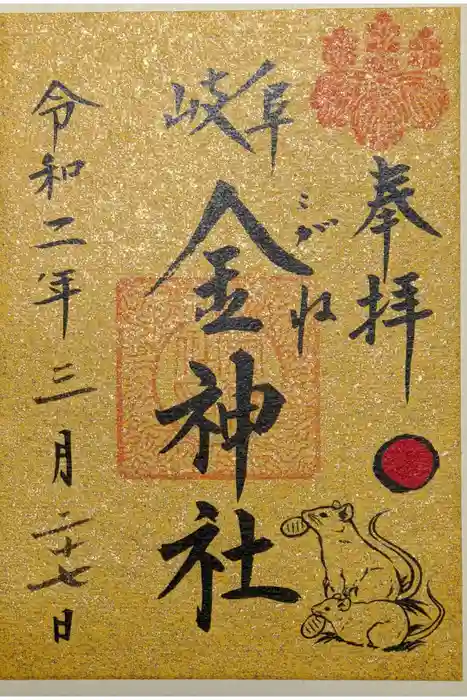 奉拝
岐阜
こがね
金神社
令和二年三月二十七日